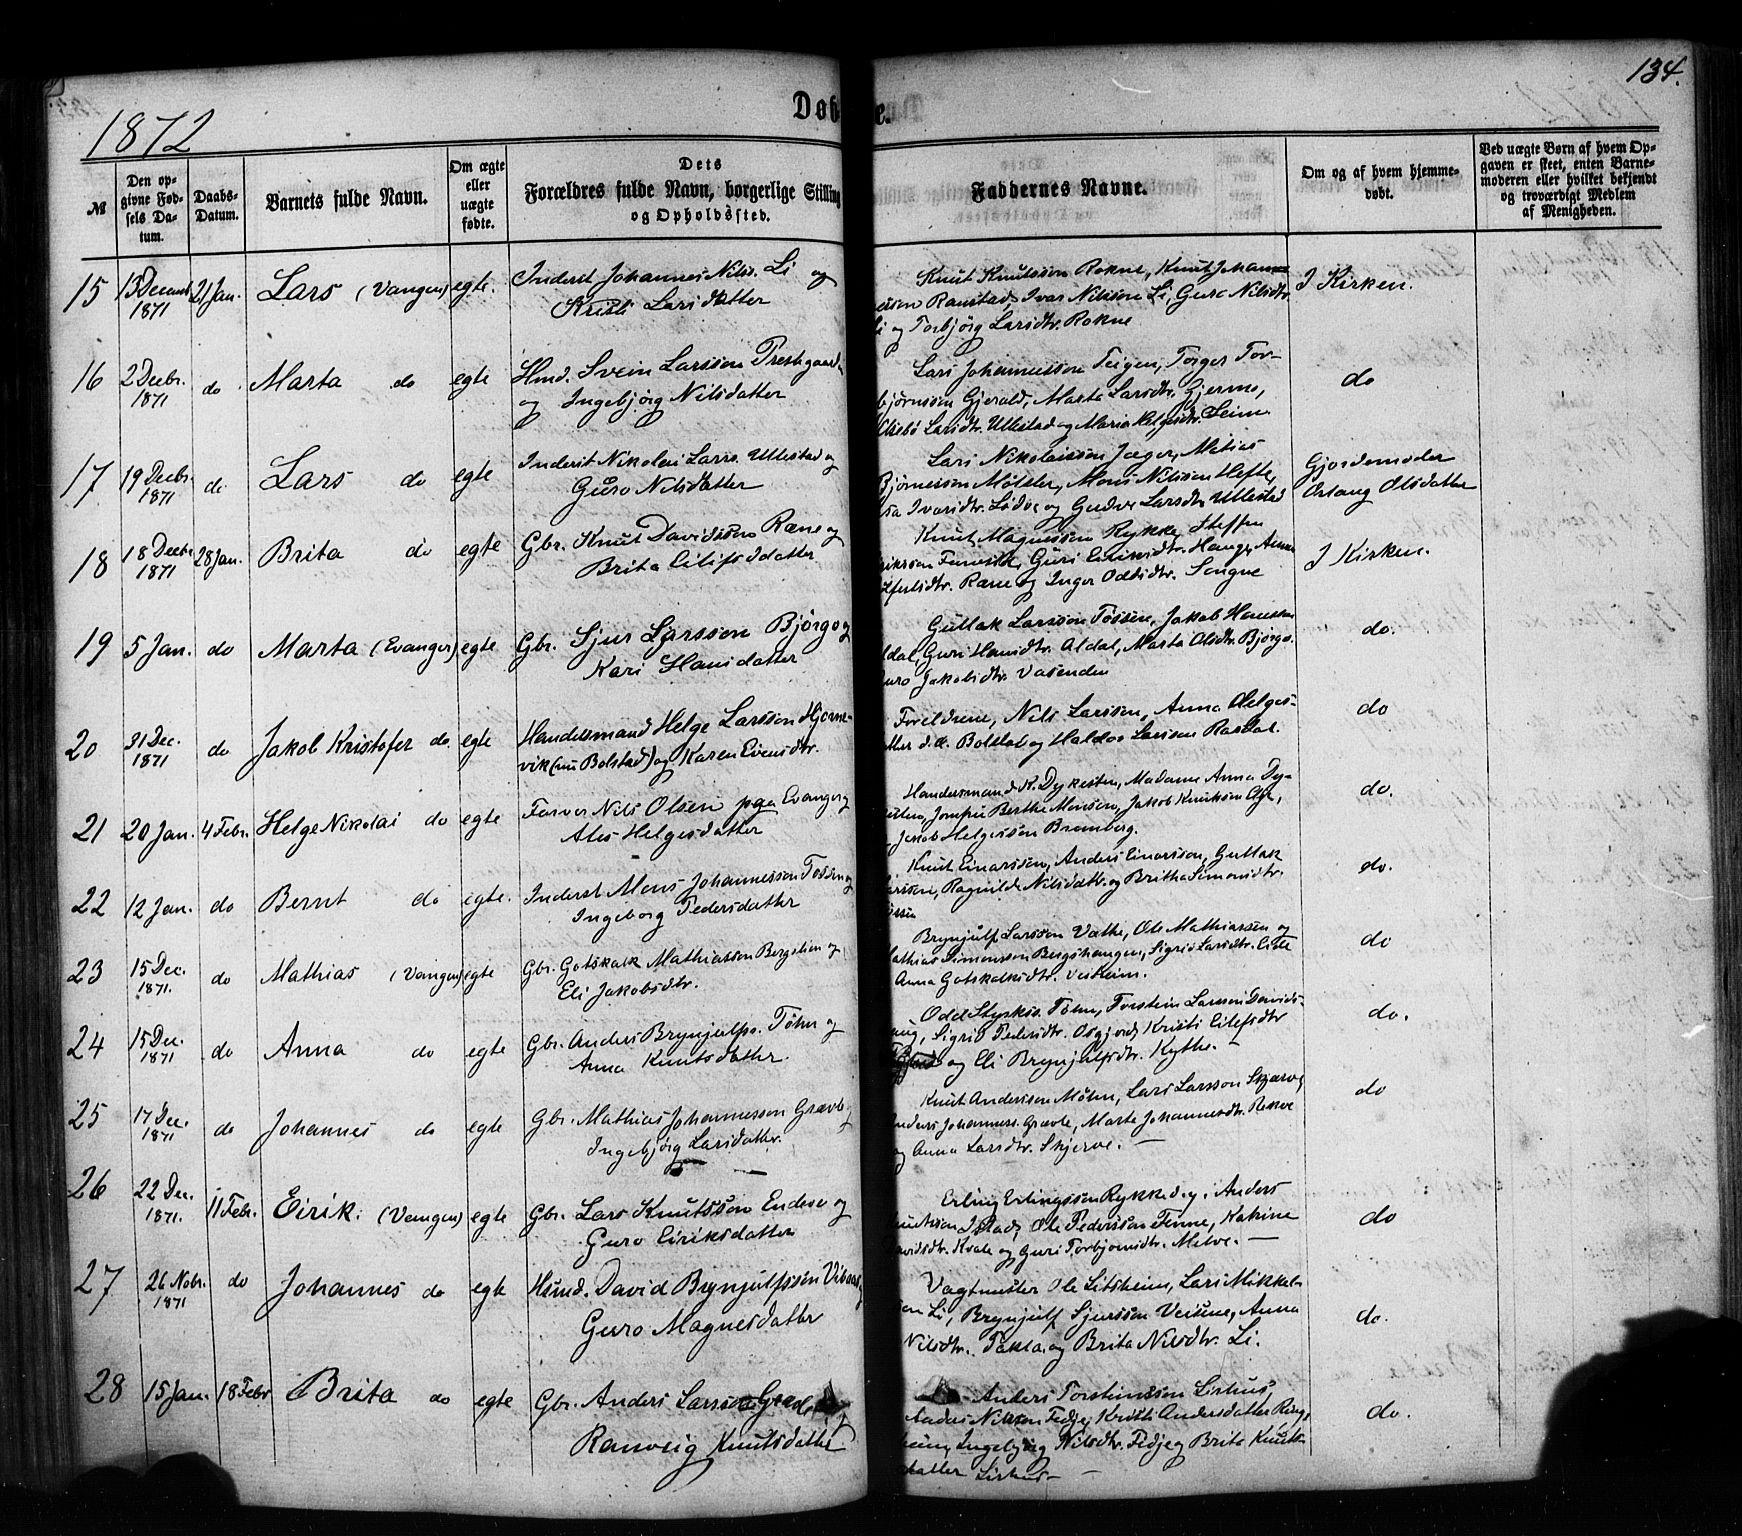 134.
1872
Døbte.
№
Den opgivne Fødsels Datum.
Daabs-Datum.
Barnets fulde Navn.
Om ægte eller uægte fødte.
Dets Forældres fulde Navn, borgerlige Stilling og Opholdssted.
Faddernes Navne.
Om og af hvem hjemmedøbt.
Ved uægte Børn af hvem Opgaven er skeet, enten Barnemoderen eller hvilket bekjendt og troværdigt Medlem af Menigheden.
15 13 Decemb 1871 21 Jan. Lars (Vangen) egte. Inderst Johannes Nils. Li og
Kristi Larsdatter
Knut Knutsson Rokne, Knut Johannesson Ranstad, Ivar Nilsson Li, Guro Nilsdtr.
Li og Torbjørg Larsdtr. Rokne
I Kirken.
16 2 Decbr. 1871 do Marta do egte Hmd. Svein Larsson Prestegaard
og Ingebjørg Nilsdatter
Lars Johannesson Teigen, Torger Tor-
bjørnsson Gjerald, Marta Larsdtr. Gjerme,
Larsdtr. Ullestad og Maria Helgesdtr. Seim
do
17 19 Decbr. 1871 do Lars do egte Inderst Nikolai Larss. Ullestad og
Guro Nilsdatter
Lars Nikolaisson Jæger, Matias
Bjørnesson Mølster, Mons Nilsson Hefte,
Ivarsdtr. Lødve og Gudve Larsdtr. Ullestad
Gjordemoder
Olsdatter
18 18 Decbr 1871 28 Jan. Brita do egte Gbr. Knut Davidsson Ræne og
Brita Eilifsdatter
Knut Magnesson Rykke, Steffen
Eirikssøn, Guri Eiriksdtr. Hauge, Anna
Ræne og Inger Oddsdtr. Songve
I Kirken.
19 5 Jan. do Marta (Evanger) egte Gbr. Sjur Larsson Bjørgo og
Kari Hansdatter
Gullak Larsson Tøssen, Jakob Hansson
Aldal, Guri Hansdtr. Aldal, Marta Olsdtr. Bjørgo.
Guro Jakobsdtr. Vasenden
do.
20 31 Dec. 1871 do Jakob Kristofer do. egte Handelsmand Helge Larsson Hjørne-
vik (nu Bolstad) og Karen Evensdtr.
Foreldrene, Nils Larsson, Anna Helges-
Bolstad og Haldor Larsson Rasdal.
do
21 20 Jan. 4 Febr. Helge Nikolai do egte Farver Nils Olsen pga Evanger og
Ales Helgesdatter
Handelsmand K. Dykesten, Madame Anna Dy-
Jomfru Berthe Monsen, Jakob Knutsson
Jakob Helgesson Bremberg.
do.
22 12 Jan. do Bernt do egte. Inderst Mons Johannesson Tøssen og
Ingeborg Pedersdatter
Knut Einarsson, Anders Einarsson, Gullak
Larsson, Ragnilde Nilsdatr. og Britha Simonsdtr.
Tøssen
do.
23 15 Dec. 1871. do Mathias (Vangen) egte Gbr. Gotskalk Mathiasson Bergslien og
Eli Jakobsdtr.
Brynjulf Larsson Væthe, Ole Mathiasson og
Mathias Simonsson Bergshaugen, Sigrid Larsdtr.
Anna Gotskalksdtr. Veiheim.
do
24 15 Dec. 1871 do Anna do egte Gbr. Anders Brynjulfs. Tøhn og
Anna Knutsdatter.
Odd Styrkss. Tøhn, Torstein Larsson Davids-
Sigrid Pedersdtr. Osgjerd, Kristi Eilefsdtr
og Eli Brynjulfsdtr. Kythe.
do.
25 17 Dec. 1871 do Johannes do egte Gbr. Mathias Johannesson Grævle og
Ingebjørg Larsdatter.
Knut Andersson Møhn, Lars Larsson Skjærve,
Anders Johanness. Grævle, Marte Johannesdtr. Rekve
og Anna Larsdtr. Skjerve.
do
26 22 Dec. 1871. 11 Febr. Eirik. (Vangen) egte Gbr. Lars Knutsson Endeve og
Guro Eiriksdatter
Erling Erlingsson Rykke d.y. Anders
Knutsson Istad, Ole Pedersson Finne, Katrine
Davidsdtr. Kvale og Guri Torbjornsdtr. Melve.
do
27 26 Nobr. 1871 do Johannes do egte Hsmd. David Brynjulfsson Vibaas og
Guro Magnesdatter
Vagtmester Ole Litsheim, Lars Mikkel-
son Li, Brynjulf Sjursson Veisene, Anna
Nilsdtr. Takla og Brita Nilsdtr. Li.
do.
28 15 Jan. 18 Febr Brita do egte Gbr. Anders Larsson
Ranveig Knutsdatter
Anders Torsteinsson Lirhus,
Anders Nilsson Fedje, Kristi Andersdatter Ring-
heim, Ingebjørg Nilsdtr. Fedje og Brita Knuts-
datter Lirhus
do.